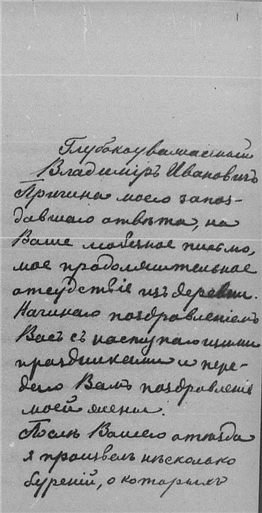 1
Глубокоуважаемый
Владимiръ Ивановичъ
Причина моего запоз-
давшаго отвѣта, на
Ваше любезное письмо,
мое продолжительное
отсудствiе изъ деревни.
Начинаю поздравленiемъ
Васъ съ наступающими
праздниками и пере-
даю Вамъ поздравленiя
моей жены.
Послѣ Вашего отъѣзда
я произвелъ нѣсколько
буренiй, о которыхъ